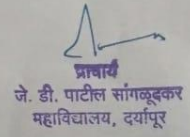 प्राचार्य
जे. डी. पाटील सांगळूदकर
महाविद्यालय, दर्यापूर